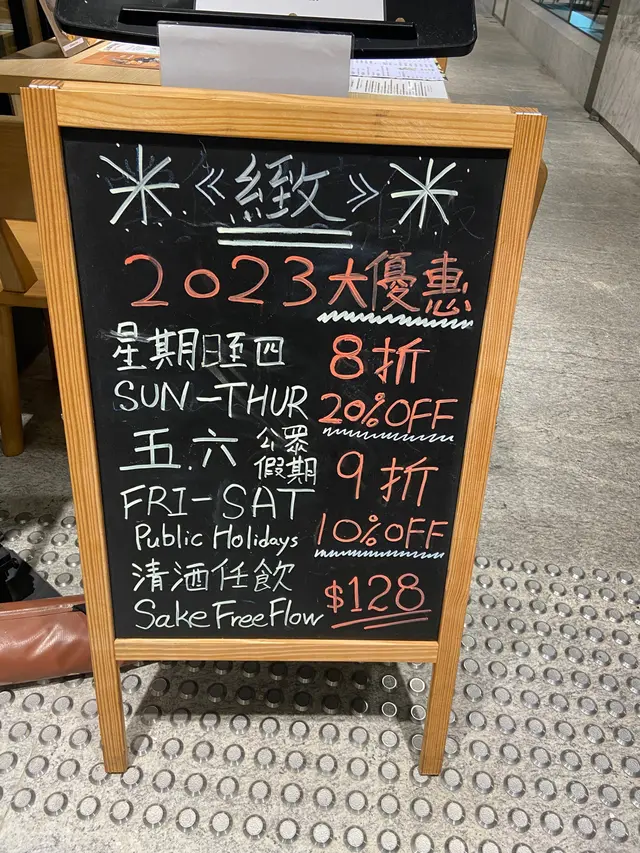 《緻》
2023大優惠
星期日至四 8折
SUN-THUR 20%OFF
五.六 公眾假期 9折
FRI-SAT
Public Holidays 10%OFF
清酒任飲
Sake Free Flow $128